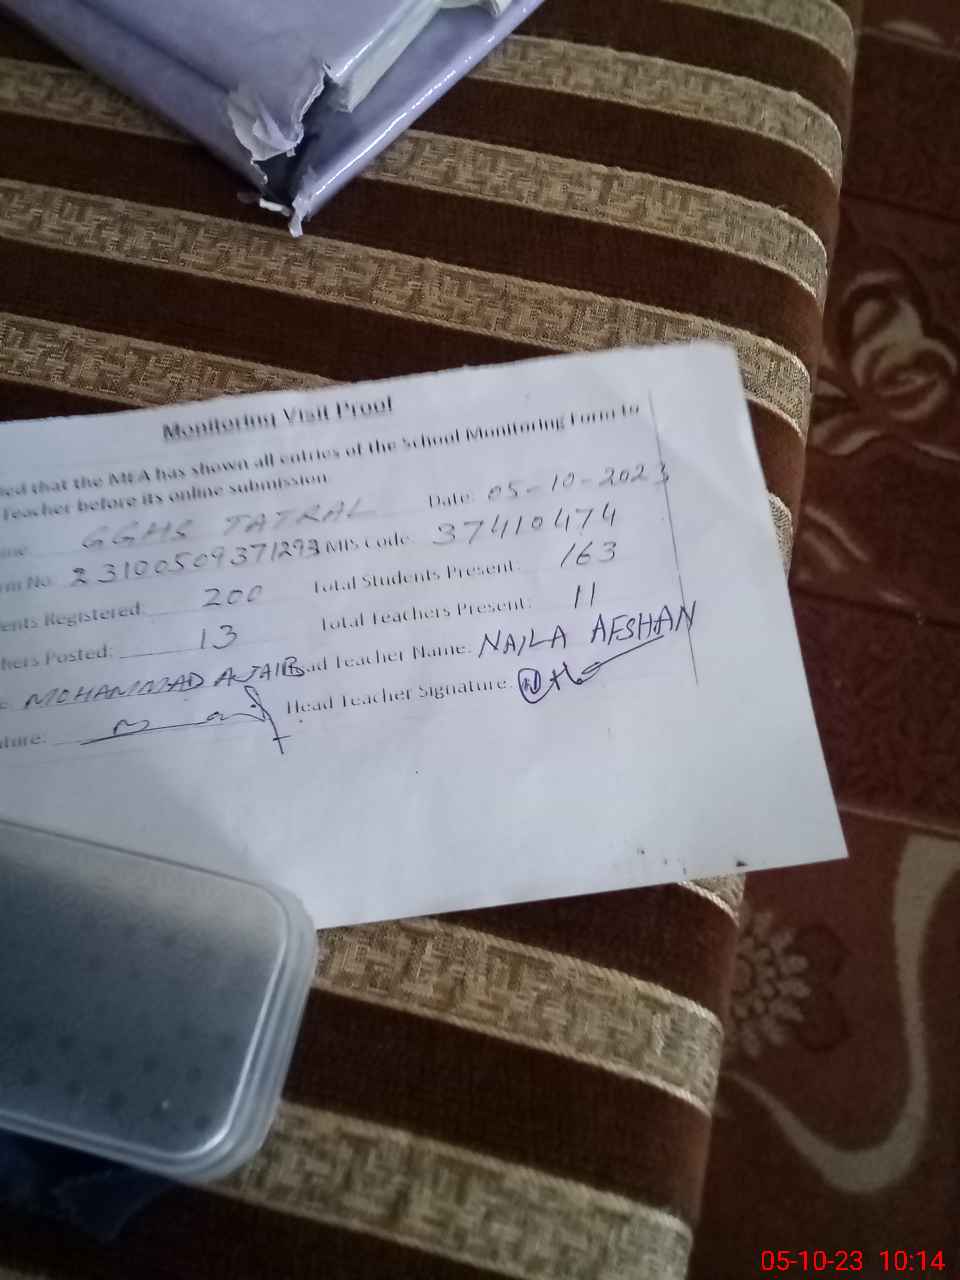 Monitoring Visit Proof
ied that the MEA has shown all entries of the School Monitoring Form to
Teacher before its online submission.
me GGHS TATRAL Date: 05-10-2023
rm No. 23100509371293 MIS Code: 37410474
ents Registered: 200 Total Students Present: 163
hers Posted: 13 Total Teachers Present: 11
e: MOHAMMAD AJAIB ad Teacher Name: NAILA AFSHAN
ture: Head Teacher Signature
05-10-23 10:14